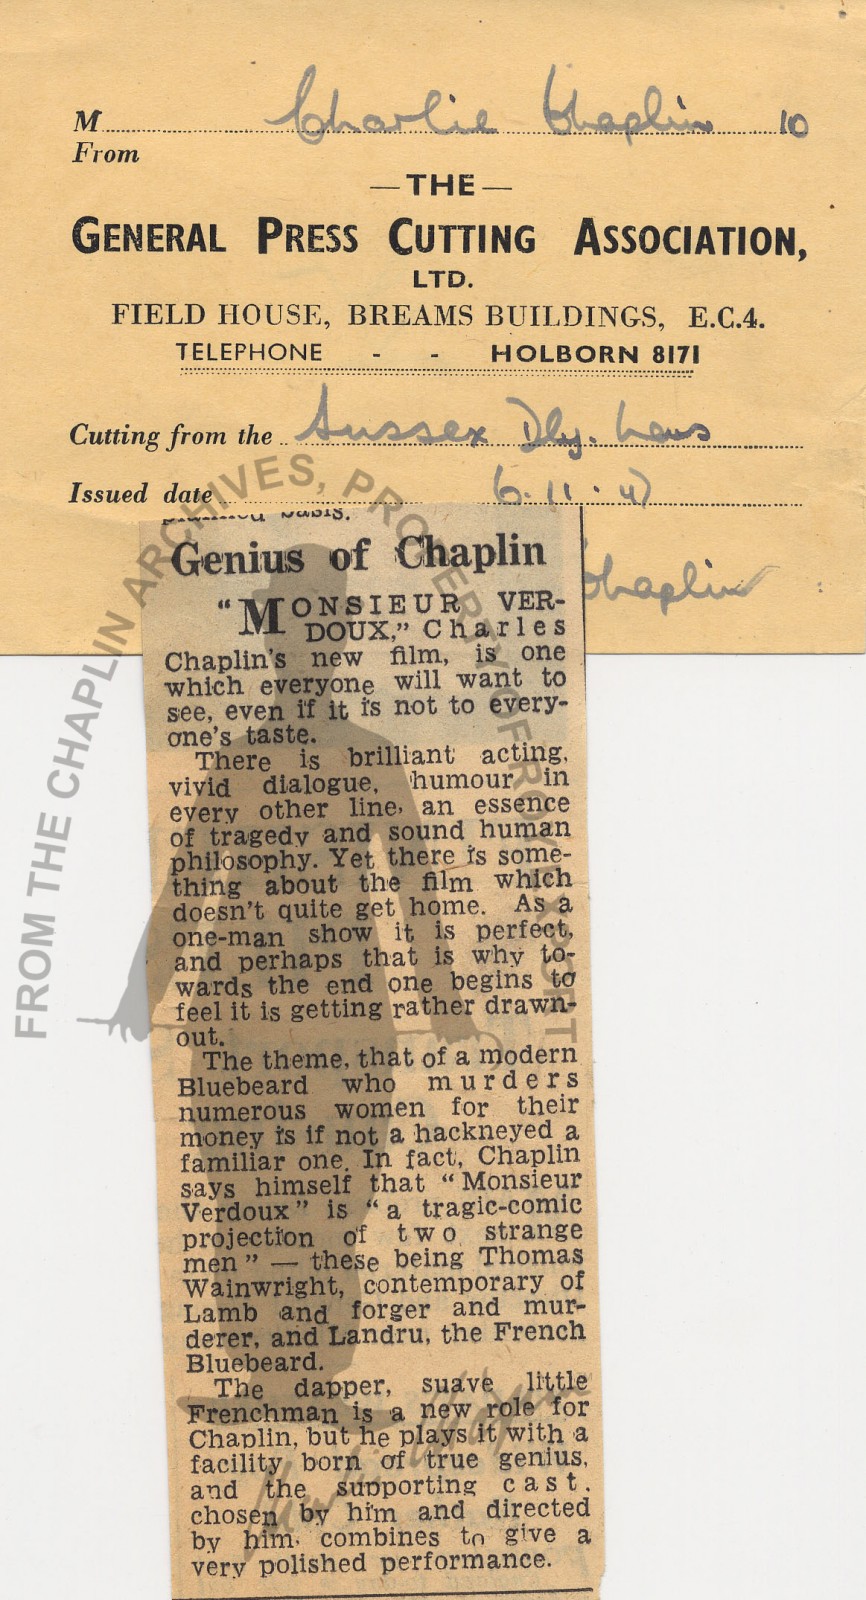 M Charlie Chaplin 10
From
— THE —
GENERAL PRESS CUTTING ASSOCIATION,
LTD.
FIELD HOUSE, BREAMS BUILDINGS, E.C.4.
TELEPHONE - - HOLBORN 8171
Cutting from the Sussex Dly. News
Issued date 6.11.47
Chaplin
planned basis.
Genius of Chaplin
"MONSIEUR VER-
DOUX," Charles
Chaplin's new film, is one
which everyone will want to
see, even if it is not to every-
one's taste.
There is brilliant acting,
vivid dialogue, humour in
every other line, an essence
of tragedy and sound human
philosophy. Yet there is some-
thing about the film which
doesn't quite get home. As a
one-man show it is perfect,
and perhaps that is why to-
wards the end one begins to
feel it is getting rather drawn-
out.
The theme, that of a modern
Bluebeard who murders
numerous women for their
money is if not a hackneyed a
familiar one. In fact, Chaplin
says himself that "Monsieur
Verdoux" is "a tragic-comic
projection of two strange
men" — these being Thomas
Wainwright, contemporary of
Lamb and forger and mur-
derer, and Landru, the French
Bluebeard.
The dapper, suave little
Frenchman is a new role for
Chaplin, but he plays it with a
facility born of true genius,
and the supporting cast.
chosen by him and directed
by him, combines to give a
very polished performance.
FROM THE CHAPLIN ARCHIVES, PROPERTY OF ROY EXPORT